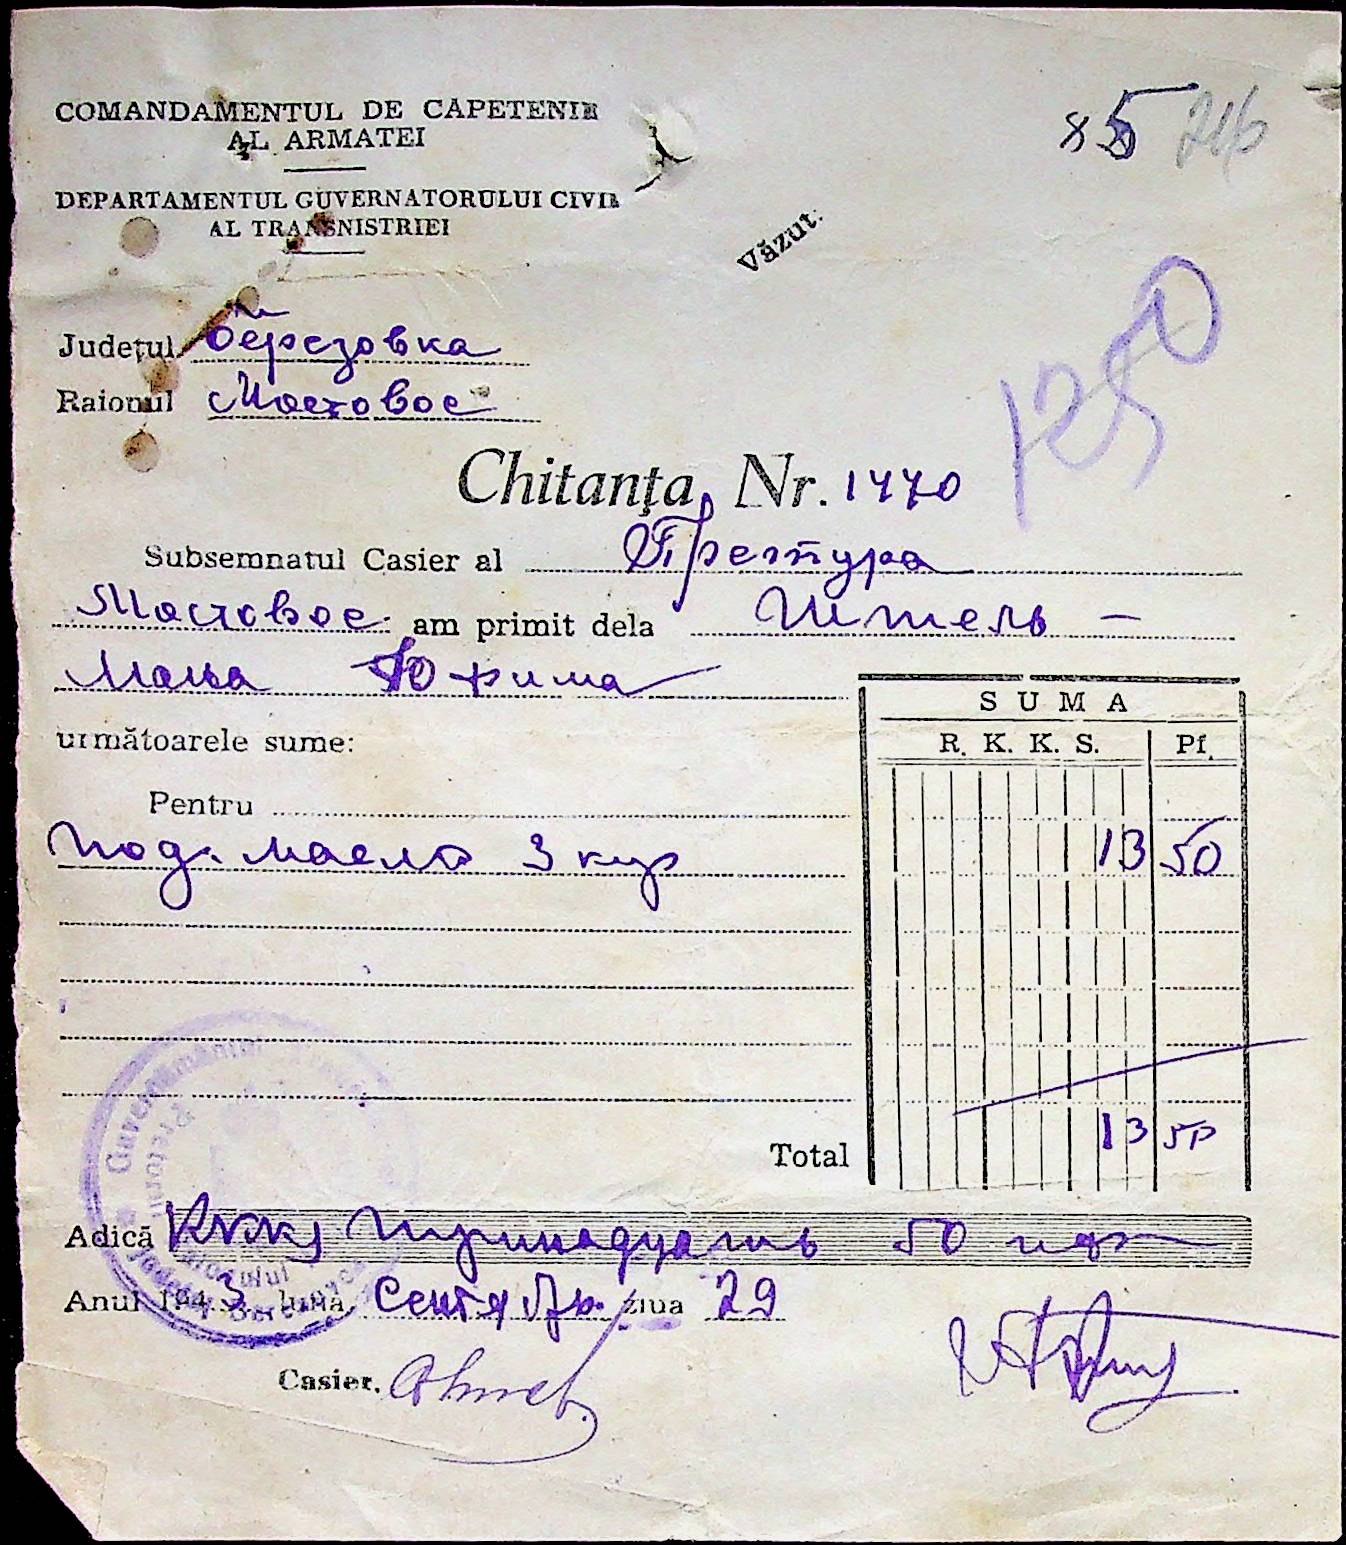 COMANDAMENTUL DE CAPETENIE
AL ARMATEI
DEPARTAMENTUL GUVERNATORULUI CIVIL
AL TRANSNISTRIEI
85 246
Văzut:
1250
Județul Березовка
Raionul Мостовое
Chitanţa Nr. 1440
Subsemnatul Casier al Претура
Мостовое am primit dela Штель-
мана Юхима
următoarele sume:
SUMA
R. K. K. S. Pf.
Pentru
под. масло 3 кур 13 50
Total 13 50
Adică тринадцать 50
Anul 1943 luna Сентябр. ziua 29
Casier,
Guvernământul
Pretorul